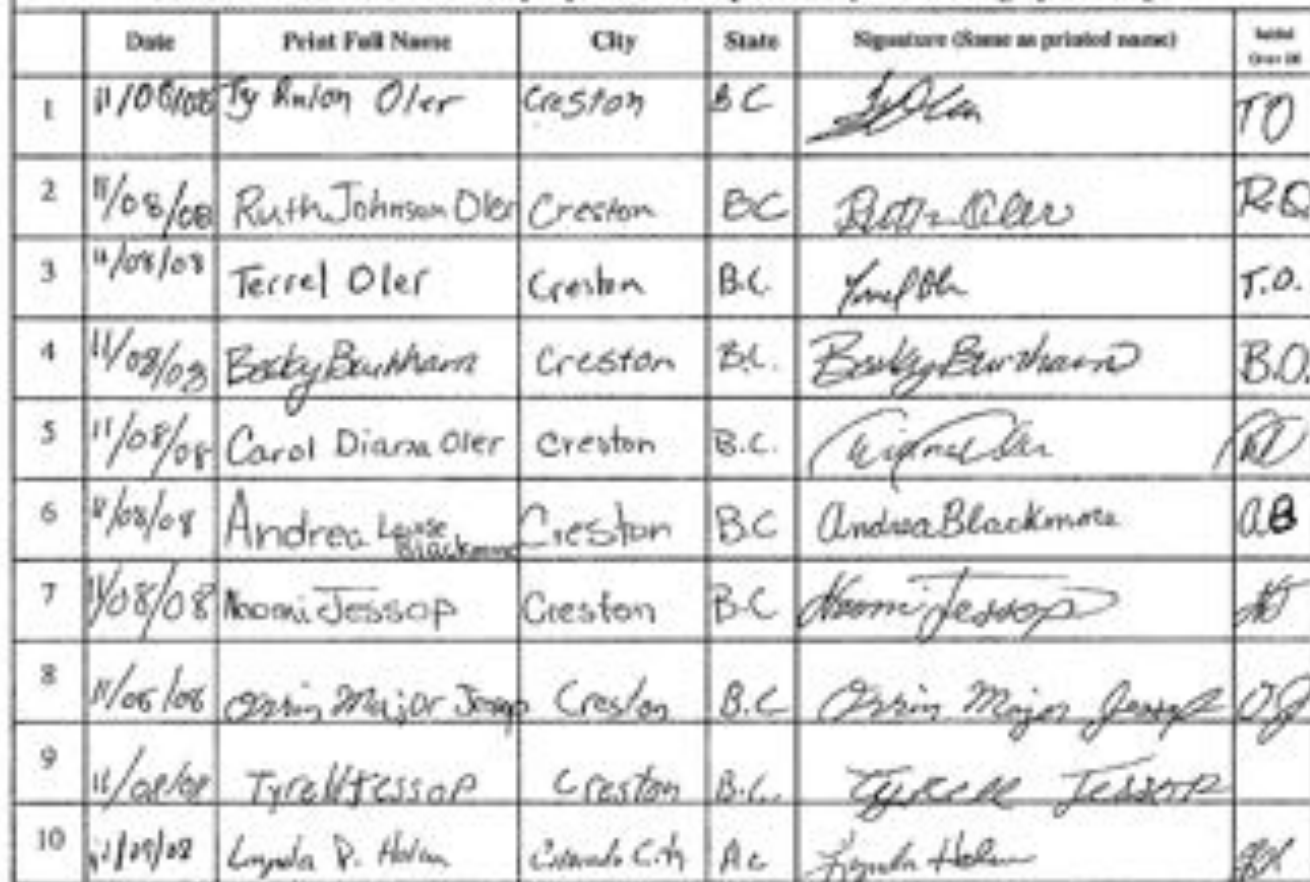 Date Print Full Name City State Signature (Same as printed name) Initial Over 18
1 11/08/08 Ty Rulon Oler Creston BC TO
2 11/08/08 Ruth Johnson Oler Creston BC Ruth Oler R.O.
3 11/08/08 Terrel Oler Creston B.C. Terrel Oler T.O.
4 11/08/08 Becky Burkham Creston B.C. Becky Burkham B.O.
5 11/08/08 Carol Diana Oler Creston B.C.
6 11/08/08 Andrea Louise Blackmore Creston B.C Andrea Blackmore AB
7 11/08/08 Naomi Jessop Creston B.C Naomi Jessop NJ
8 11/08/08 Orrin Major Jessop Creston B.C Orrin Major Jessop OJ
9 11/08/08 Tyrell Jessop Creston B.C. Tyrell Jessop
10 Lynda Colorado City Lynda